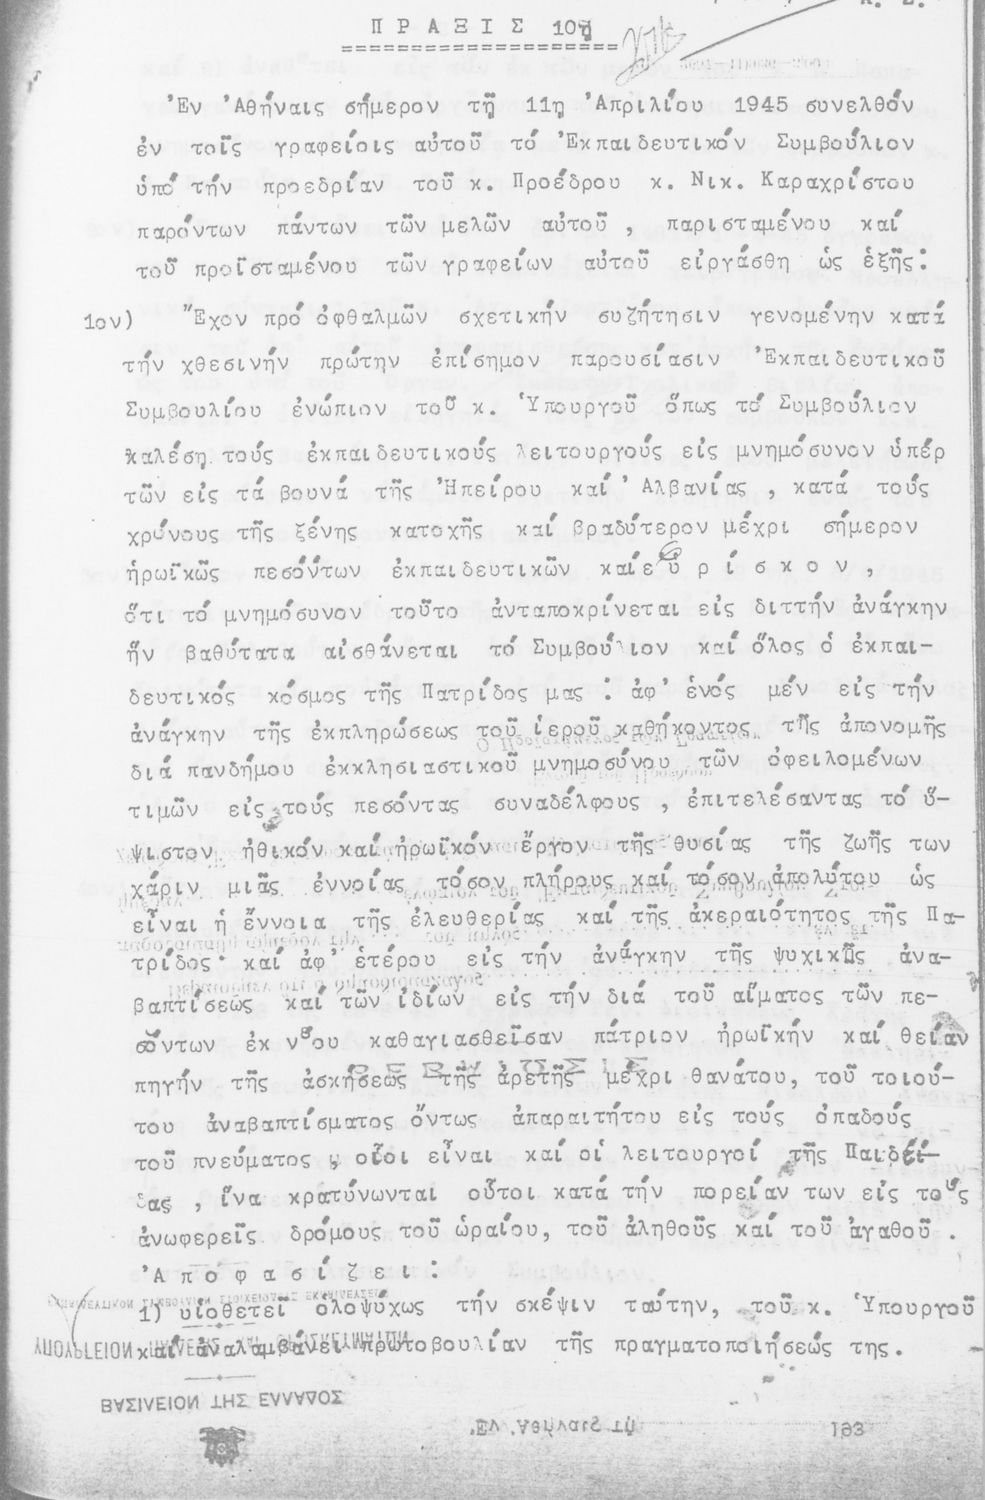 Π Ρ Α Ξ Ι Σ 10η
Ἐν Ἀθήναις σήμερον τῇ 11η Ἀπριλίου 1945 συνελθόν
ἐν τοῖς γραφείοις αὐτοῦ τό Ἐκπαιδευτικόν Συμβούλιον
ὑπό τήν προεδρίαν τοῦ κ. Προέδρου κ. Νικ. Καραχρίστου
παρόντων πάντων τῶν μελῶν αὐτοῦ , παρισταμένου καί
τοῦ προϊσταμένου τῶν γραφείων αὐτοῦ εἰργάσθη ὡς ἑξῆς:
1ον) Ἔχον πρό ὀφθαλμῶν σχετικήν συζήτησιν γενομένην κατά
τήν χθεσινήν πρώτην ἐπίσημον παρουσίασιν Ἐκπαιδευτικοῦ
Συμβουλίου ἐνώπιον τοῦ κ. Ὑπουργοῦ ὅπως τό Συμβούλιον
καλέσῃ τούς ἐκπαιδευτικούς λειτουργούς εἰς μνημόσυνον ὑπέρ
τῶν εἰς τά βουνά τῆς Ἠπείρου καί Ἀλβανίας , κατά τούς
χρόνους τῆς ξένης κατοχῆς καί βραδύτερον μέχρι σήμερον
ἡρωϊκῶς πεσόντων ἐκπαιδευτικῶν καί ε ὑ ρ ί σ κ ο ν ,
ὅτι τό μνημόσυνον τοῦτο ἀνταποκρίνεται εἰς διττήν ἀνάγκην
ἥν βαθύτατα αἰσθάνεται τό Συμβούλιον καί ὅλος ὁ ἐκπαι-
δευτικός κόσμος τῆς Πατρίδος μας : ἀφ' ἑνός μέν εἰς τήν
ἀνάγκην τῆς ἐκπληρώσεως τοῦ ἱεροῦ καθήκοντος τῆς ἀπονομῆς
διά πανδήμου ἐκκλησιαστικοῦ μνημοσύνου τῶν ὀφειλομένων
τιμῶν εἰς τούς πεσόντας συναδέλφους , ἐπιτελέσαντας τό ὕ-
ψιστον ἠθικόν καί ἡρωϊκόν ἔργον τῆς θυσίας τῆς ζωῆς των
χάριν μιᾶς ἐννοίας τόσον πλήρους καί τόσον ἀπολύτου ὡς
εἶναι ἡ ἔννοια τῆς ἐλευθερίας καί τῆς ἀκεραιότητος τῆς Πα-
τρίδος· καί ἀφ' ἑτέρου εἰς τήν ἀνάγκην τῆς ψυχικῆς ἀνα-
βαπτίσεως καί τῶν ἰδίων εἰς τήν διά τοῦ αἵματος τῶν πε-
σόντων ἐκ νέου καθαγιασθεῖσαν πάτριον ἡρωϊκήν καί θείαν
πηγήν τῆς ἀσκήσεως τῆς ἀρετῆς μέχρι θανάτου, τοῦ τοιού-
του ἀναβαπτίσματος ὄντως ἀπαραιτήτου εἰς τούς ὀπαδούς
τοῦ πνεύματος , οἷοι εἶναι καί οἱ λειτουργοί τῆς Παιδεί-
ας , ἵνα κρατύνωνται οὗτοι κατά τήν πορείαν των εἰς τούς
ἀνωφερεῖς δρόμους τοῦ ὡραίου, τοῦ ἀληθοῦς καί τοῦ ἀγαθοῦ .
Ἀ π ο φ α σ ί ζ ε ι :
1) υἱοθετεῖ ὁλοψύχως τήν σκέψιν ταύτην, τοῦ κ. Ὑπουργοῦ
καί ἀναλαμβάνει πρωτοβουλίαν τῆς πραγματοποιήσεώς της.
ΒΑΣΙΛΕΙΟΝ ΤΗΣ ΕΛΛΑΔΟΣ
Ἐν Ἀθήναις τῇ 193